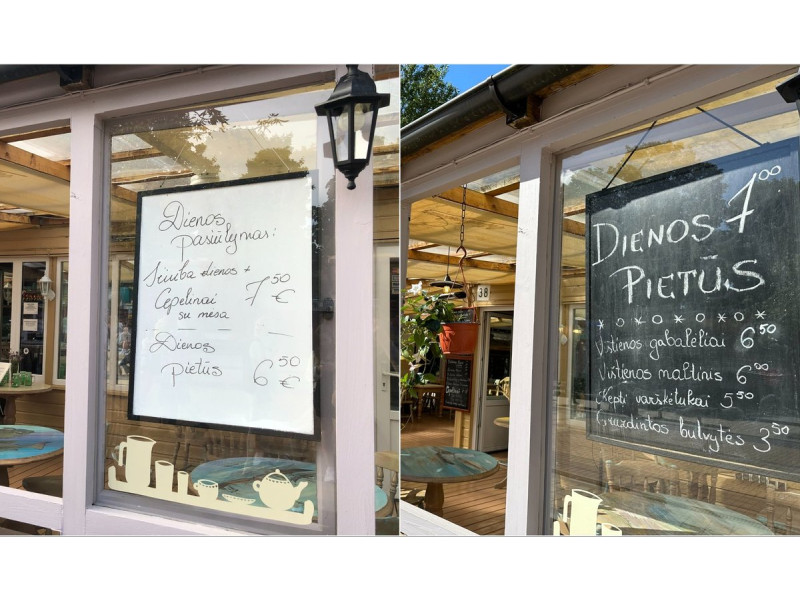 Dienos
pasiūlymas:
Sriuba dienos +
Cepelinai 7 50 €
su mesa
Dienos
pietūs 6 50 €
DIENOS 7 00
PIETŪS
* o * o * o * o *
Vištienos gabalėliai 6 50
Vištienos maltinis 6 00
Kepti varškėtukai 5 50
Gruzdintos bulvytės 3 50
38